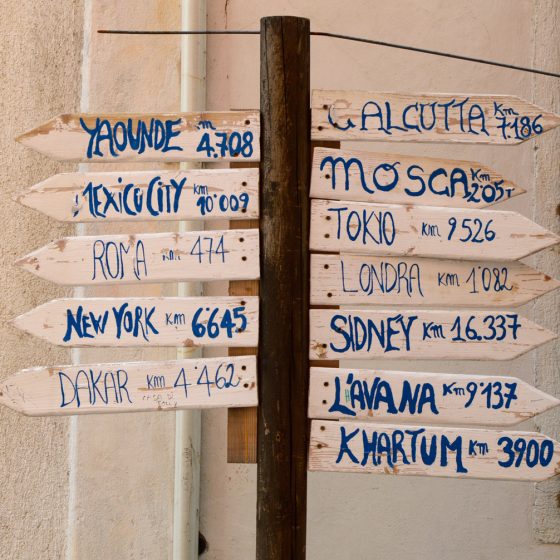 YAOUNDE Km 4.708
MEXICO CITY Km 10'009
ROMA Km 474
NEW YORK Km 6645
DAKAR Km 4'462
CALCUTTA Km 7186
MOSCA Km 2'057
TOKIO Km 9526
LONDRA Km 1'082
SIDNÉY Km 16.337
L'AVANA Km 9'137
KHARTUM Km 3900